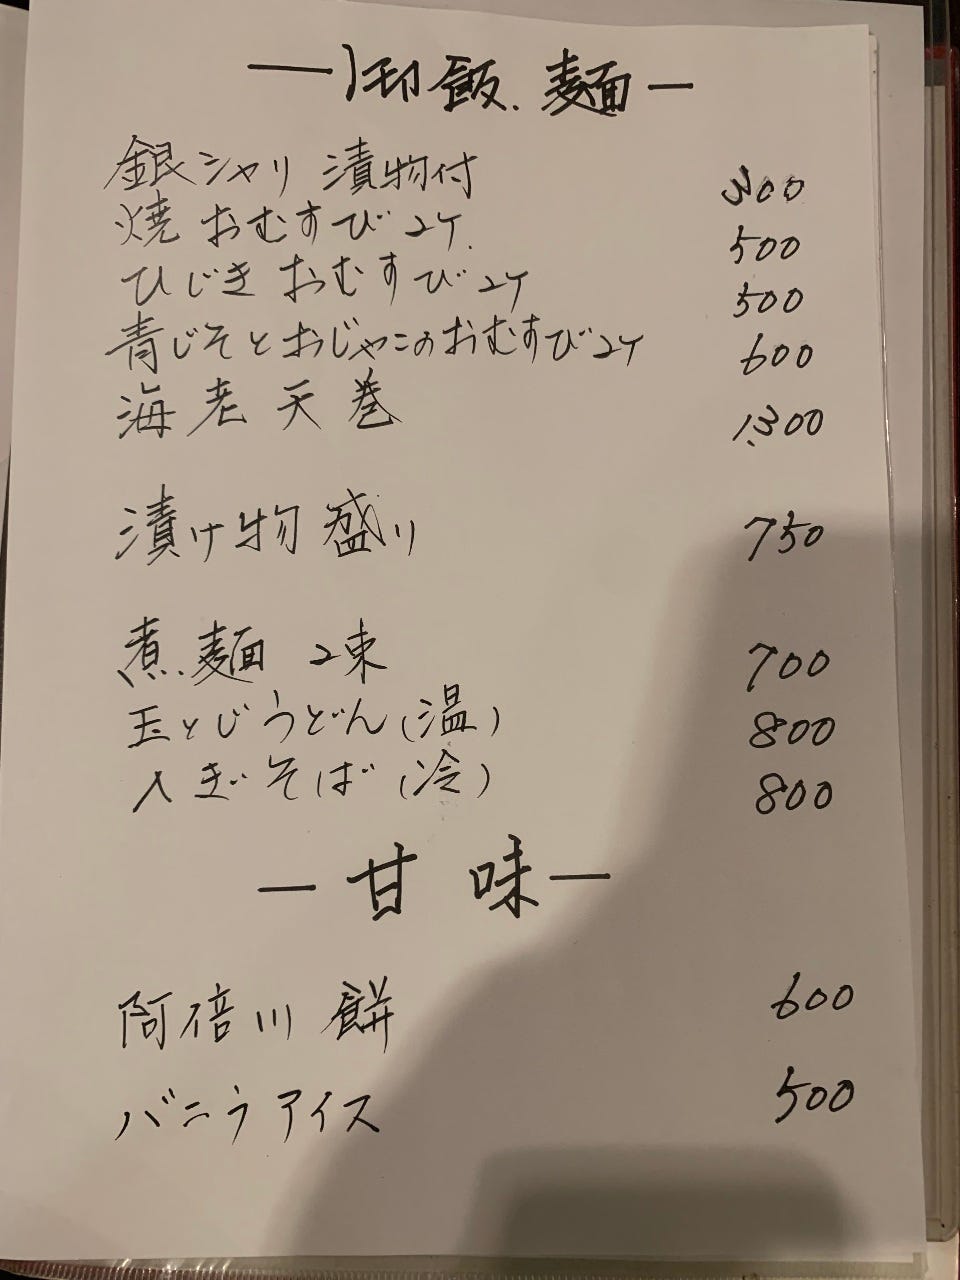 —御飯、麺—
銀シャリ 漬物付 300
焼おむすび 2ケ. 500
ひじきおむすび 2ケ 500
青じそとおじゃこのおむすび2ケ 600
海老天巻 1,300
漬け物盛り 750
煮麺 2束 700
玉とじうどん(温) 800
へぎそば(冷) 800
—甘味—
阿倍川餅 600
バニラアイス 500